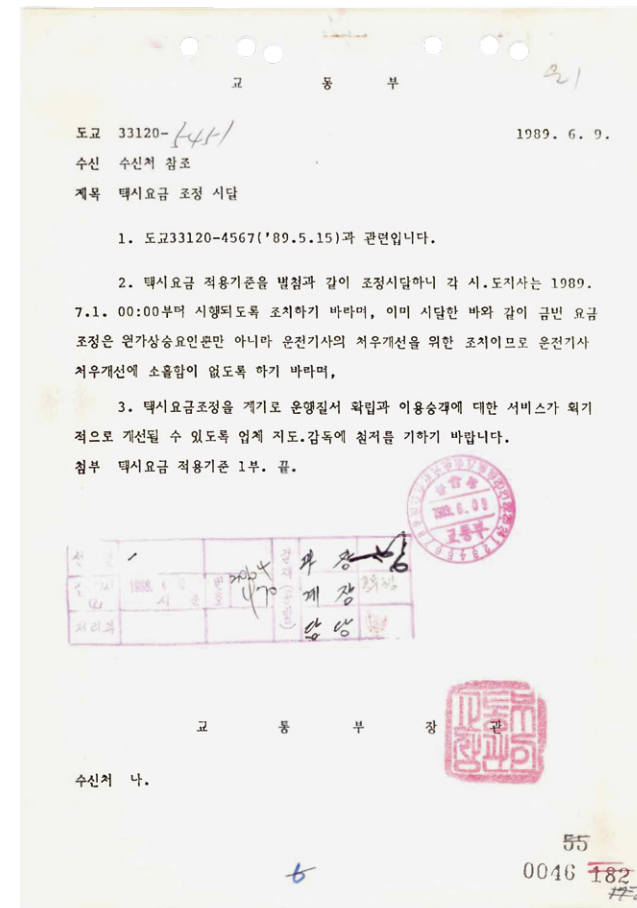 교 통 부
도교 33120-
1989. 6. 9.
수신 수신처 참조
제목 택시요금 조정 시달
1. 도교33120-4567('89.5.15)과 관련입니다.
2. 택시요금 적용기준을 별첨과 같이 조정시달하니 각 시.도지사는 1989.
7.1. 00:00부터 시행되도록 조치하기 바라며, 이미 시달한 바와 같이 금번 요금
조정은 원가상승요인뿐만 아니라 운전기사의 처우개선을 위한 조치이므로 운전기사
처우개선에 소홀함이 없도록 하기 바라며,
3. 택시요금조정을 계기로 운행질서 확립과 이용승객에 대한 서비스가 획기
적으로 개선될 수 있도록 업체 지도.감독에 철저를 기하기 바랍니다.
첨부 택시요금 적용기준 1부. 끝.
1989.6.09
교통부
과 장
계 장
담당
교 통 부 장 관
수신처 나.
55
0046 182